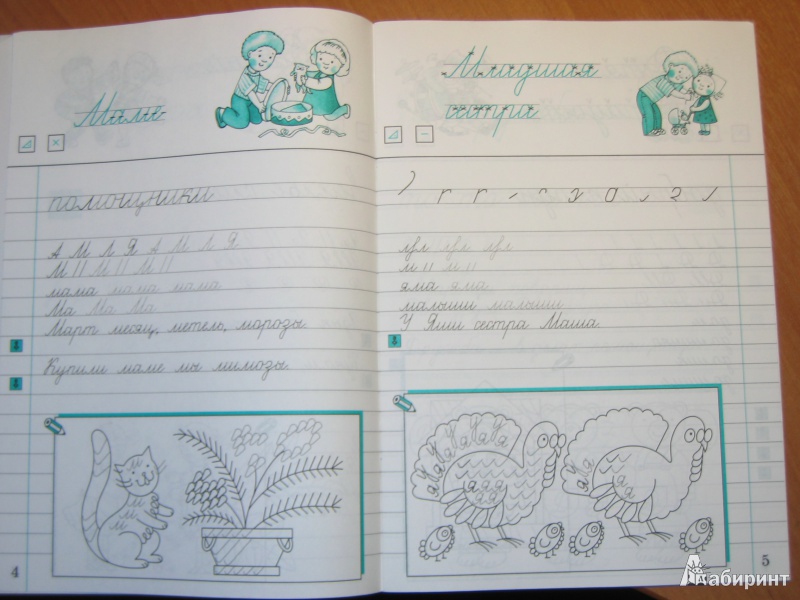 Маме
помощники
А М Л Я А М Л Я
М М М
мама мама мама
Ма Ма Ма
Март месяц, метель, морозы.
Купили маме мы мимозы.
4
Младшая
сестра
м м
яма яма
малыши малыши
У Яши сестра Маша.
5
Лабиринт